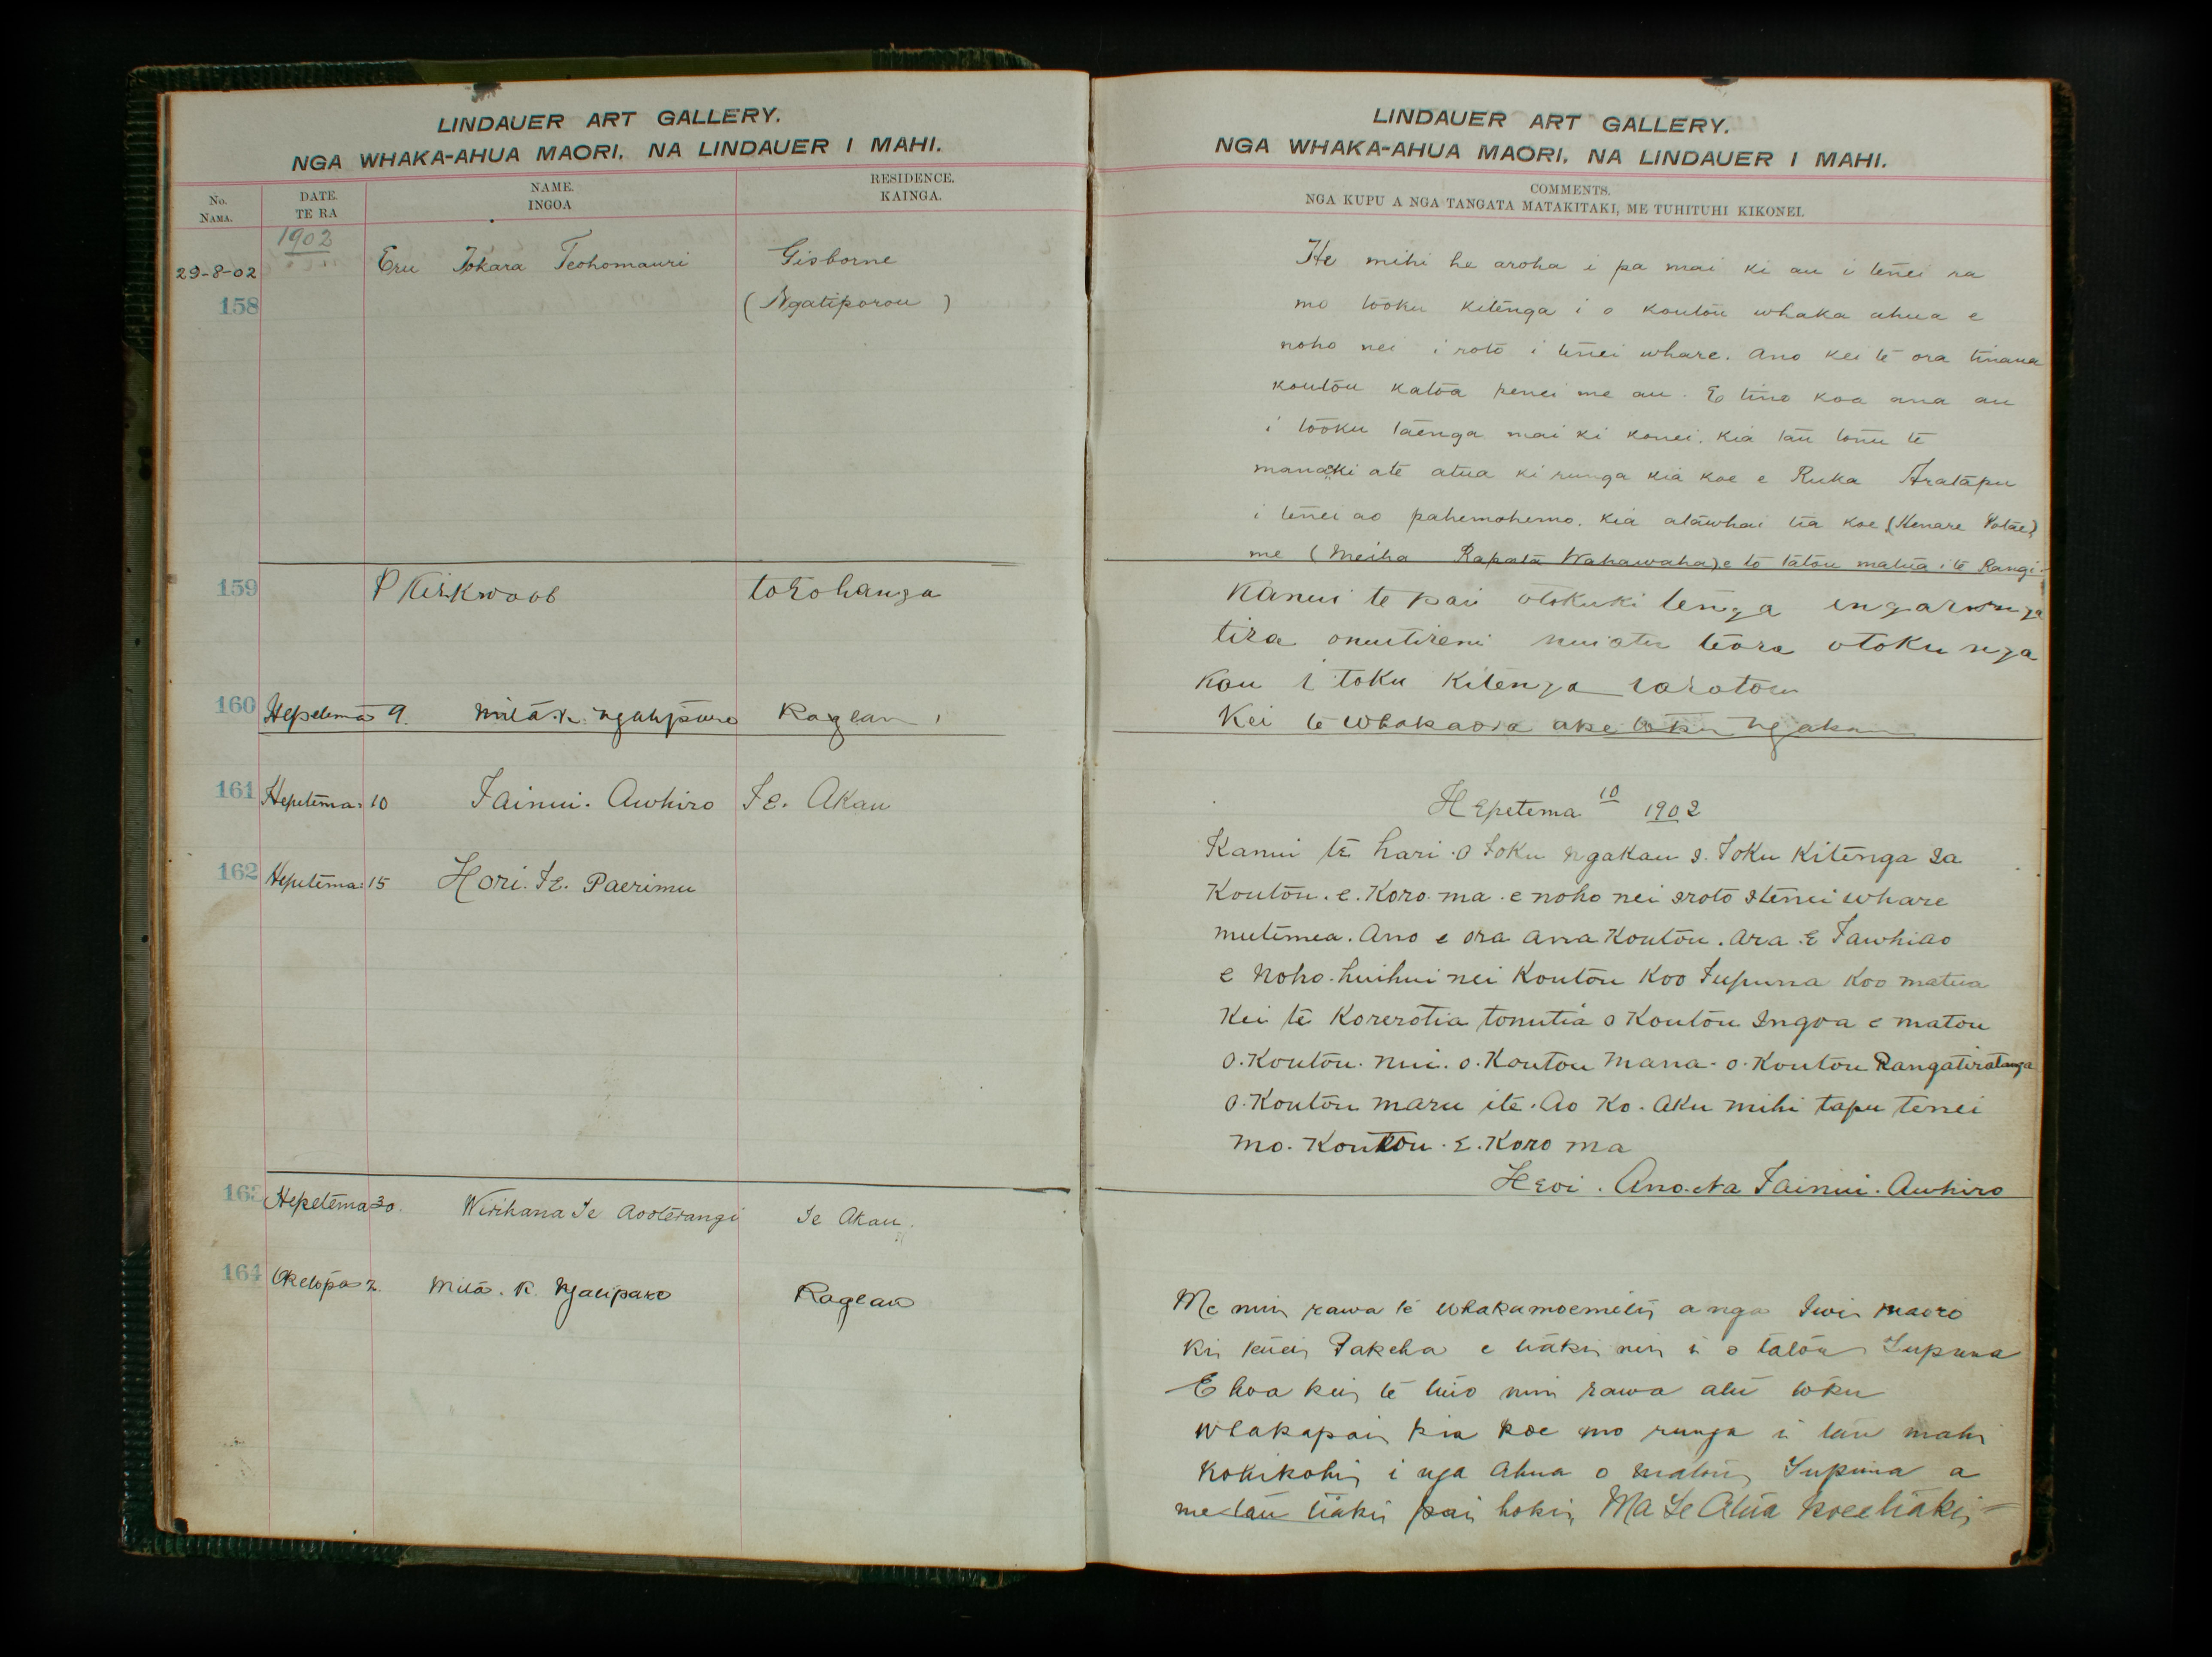 LINDAUER ART GALLERY.
NGA WHAKA-AHUA MAORI, NA LINDAUER I MAHI.
No.
NAMA.
DATE.
TE RA
NAME.
INGOA
RESIDENCE.
KAINGA.
1902
29-8-02
Eru Tokara Teohomauri
Gisborne
158
(Ngatiporou)
159
P Kirkwood
torohanga
160 Hepetema 9.
Raglan
161 Hepetema 10
Tainui. Awhiro
Te. Akau
162 Hepetema 15
Hori. Te. Paerimu
163 Hepetema 30.
Wirihana Te Aooterangi
Te Akau.
164 Oketopa 2.
Mita. K. Ngatipare
Raglan
LINDAUER ART GALLERY.
NGA WHAKA-AHUA MAORI, NA LINDAUER I MAHI.
COMMENTS.
NGA KUPU A NGA TANGATA MATAKITAKI, ME TUHITUHI KIKONEI.
He mihi he aroha i pa mai ki au i tenei ra
mo tooku kitenga i o koutou whaka ahua e
noho nei i roto i tenei whare. Ano kei te ora tinana
koutou katoa penei me au. E tino koa ana au
i tooku taenga mai ki konei. Kia tau tonu te
manaki ate atua ki runga kia koe e Ruka Aratapu
i tenei ao pahemohemo. Kia atawhai tia koe (Henare Potae)
me (Meiha Rapata Wahawaha) e to tatou matua i te Rangi.
Kanui te pai otoku ki tenga
tira onuitireni nui atu teora otoku nga
kau i toku kitenga iaratou
Kei te whakaora ake
Hepetema 10 1902
Kanui te hari. o Toku ngakau I. Toku Kitenga Ia
Koutou. e. Koro. ma. e noho nei Iroto Itenei whare
mutimea. Ano e ora ana Koutou. Ara. E Tawhiao
e Noho. huihui nei Koutou Koo Tupuna Koo matua
Kei te Korerotia tonutia o Koutou Ingoa e matou
o. Koutou. nui. o. Koutou Mana. o. Koutou Rangatiratanga
o. Koutou maru ite. Ao Ko. aku mihi tapu tenei
mo. Koutou. E. Koro ma
Heoi. Ano. Na Tainui. Awhiro
Me nui rawa te whakamoemiti a nga Iwi maori
ki tenei Pakeha e tiaki nei i o tatou Tupuna
E hoa kei te tino nui rawa atu toku
whakapai kia koe mo runga i tau mahi
kohikohi i nga Ahua o matou Tupuna a
me tau tiaki pai hoki, Ma Te Atua koe e tiaki